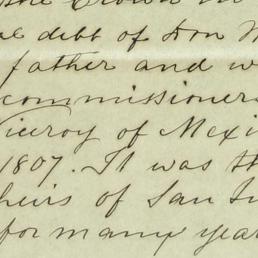 the Crown
debt of Don
father and
commissioners
Viceroy of Mexi
1807. It was th
heirs of San
for many year